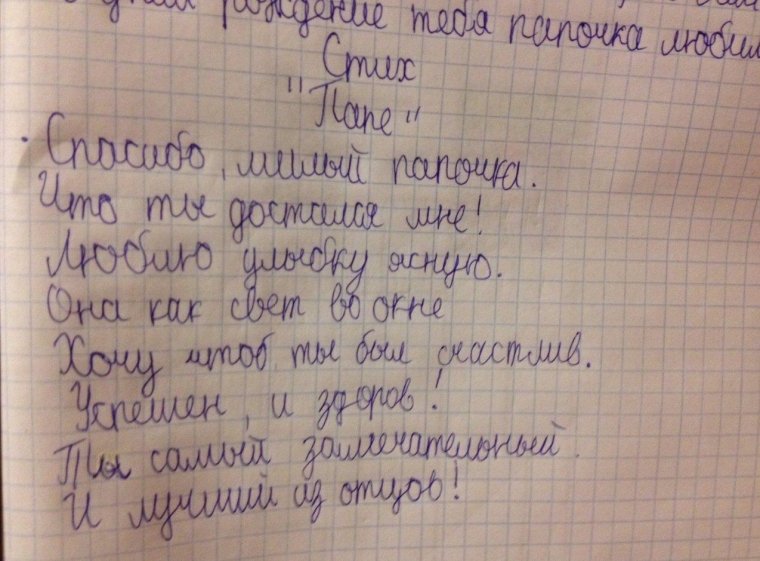 рождение тебя папочка любим
Стих
"Папе"
Спасибо, милый папочка.
Что ты достался мне!
Люблю улыбку ясную.
Она как свет во окне
Хочу чтоб ты был счастлив.
Успешен, и здоров!
Ты самый замечательный.
И лучший из отцов!